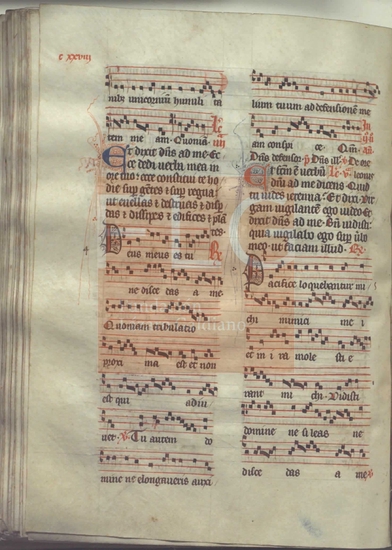 c xxviij
nibus unicornium humilita
tem me am. Quoniam.
Et dixit dñs ad me. Ecce
ce dedi verba mea in
ore tuo: ecce constitui te ho
die sup gentes & sup regna
ut evellas & destruas & disp
das & dissipes & edifices & plan
tes.
Deus meus es tu
ne disce das a me
Quoniam tribulatio
proxi ma est et non
est qui adiu
vet. V Tu autem do
mine ne elongaveris auxi
lium tuum ad defensionem me
am conspi ce
Dñs defensor
Et factum e verbū
dñi ad me dicens Quid
tu vides ieremia. Et dixi. Vir
gam vigilantem ego video. Et
dixit dñs ad me. Bñ vidisti:
quia vigilabo ego sup
meū ut faciam illud.
Pacifice loquebantur mi
chi inimici me i
et in i ra mole sti e
rant mi chi. Vidisti
domine ne si leas ne
disce das a me